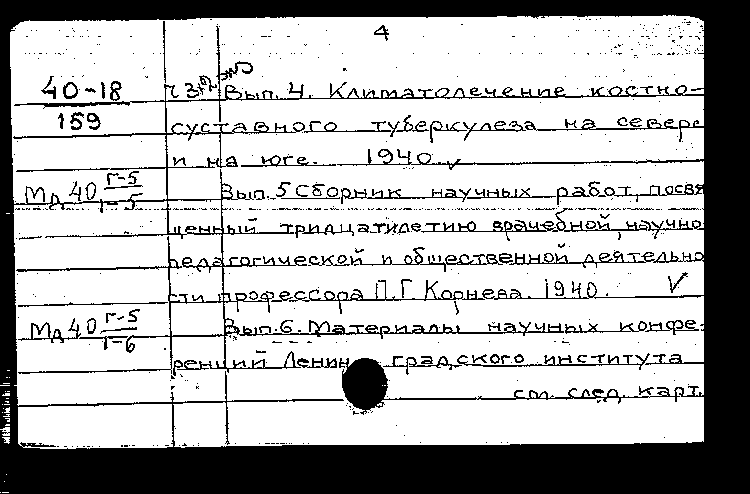 4
40-18 Вып. 4. Климатолечение костно-
159 суставного туберкулеза на севере
и на юге. 1940.
Мд 40 Г-5 Вып. 5 Сборник научных работ, посвя
1-5 щенный тридцатилетию врачебной, научно
педагогической и общественной деятельно
сти профессора П.Г. Корнева. 1940.
Мд 40 Г-5 Вып. 6. Материалы научных конфе-
1-6 ренций Ленинградского института
см. след. карт.